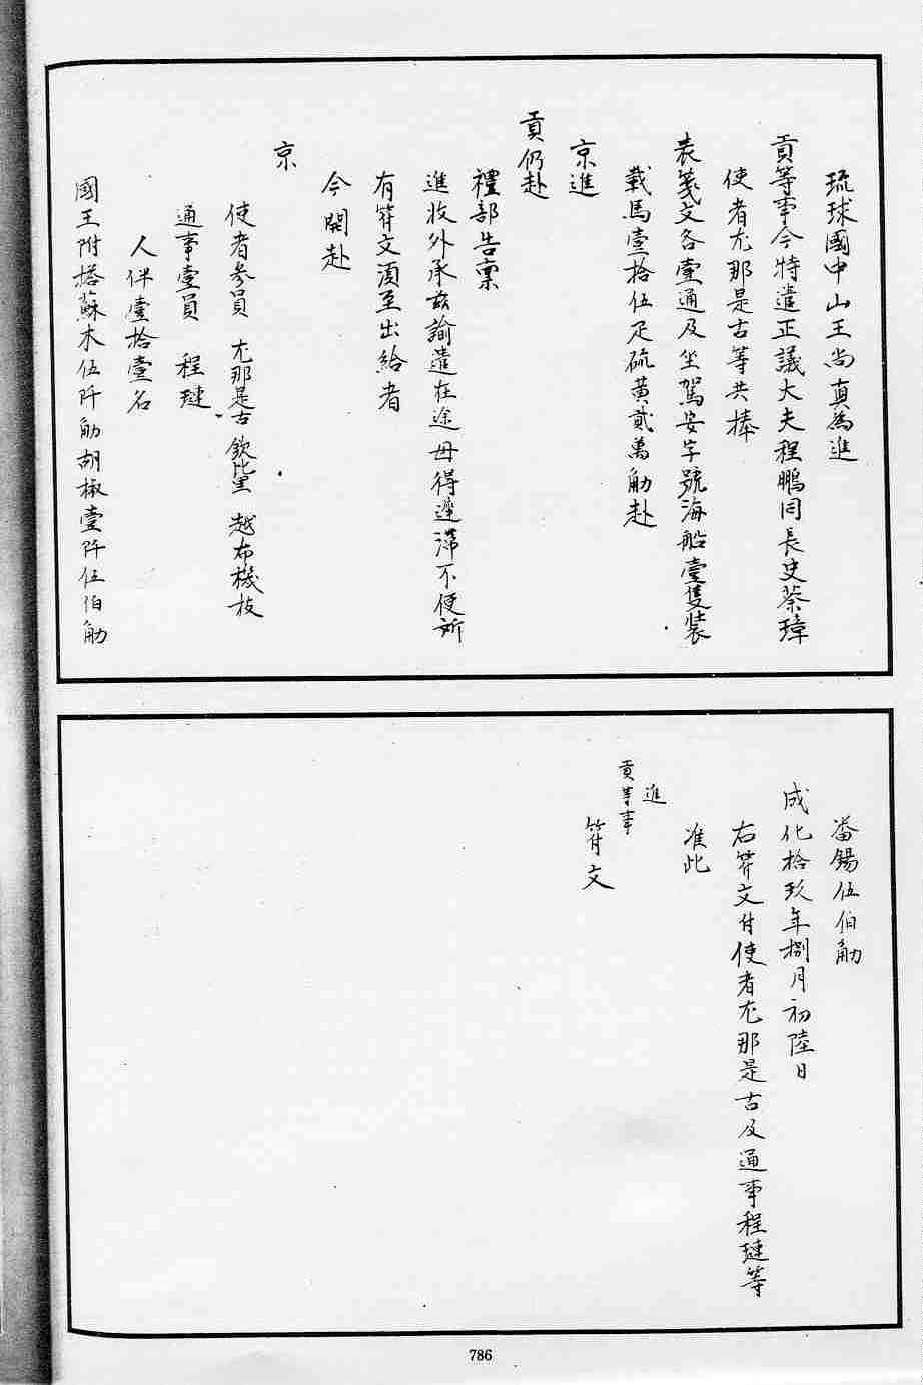 琉球國中山王尚真為進
貢等事今特遣正議大夫程鵬同長史蔡璋
使者尤那是古等共捧
表箋文各壹通及坐駕安字號海船壹隻裝
載馬壹拾伍疋硫黄貳萬觔赴
京進
貢仍赴
禮部告稟
進收外承玆諭遣在途毋得遲滯不便所
有符文湏至出給者
今開赴
京
使者參員 尤那是古 欽比里 越布機枝
通事壹員 程璉
人伴壹拾壹名
國王附搭蘇木伍阡觔胡椒壹阡伍伯觔
番錫伍伯觔
成化拾玖年捌月初陸日
右符文付使者尤那是古及通事程璉等
准此
進
貢等事
符文
786